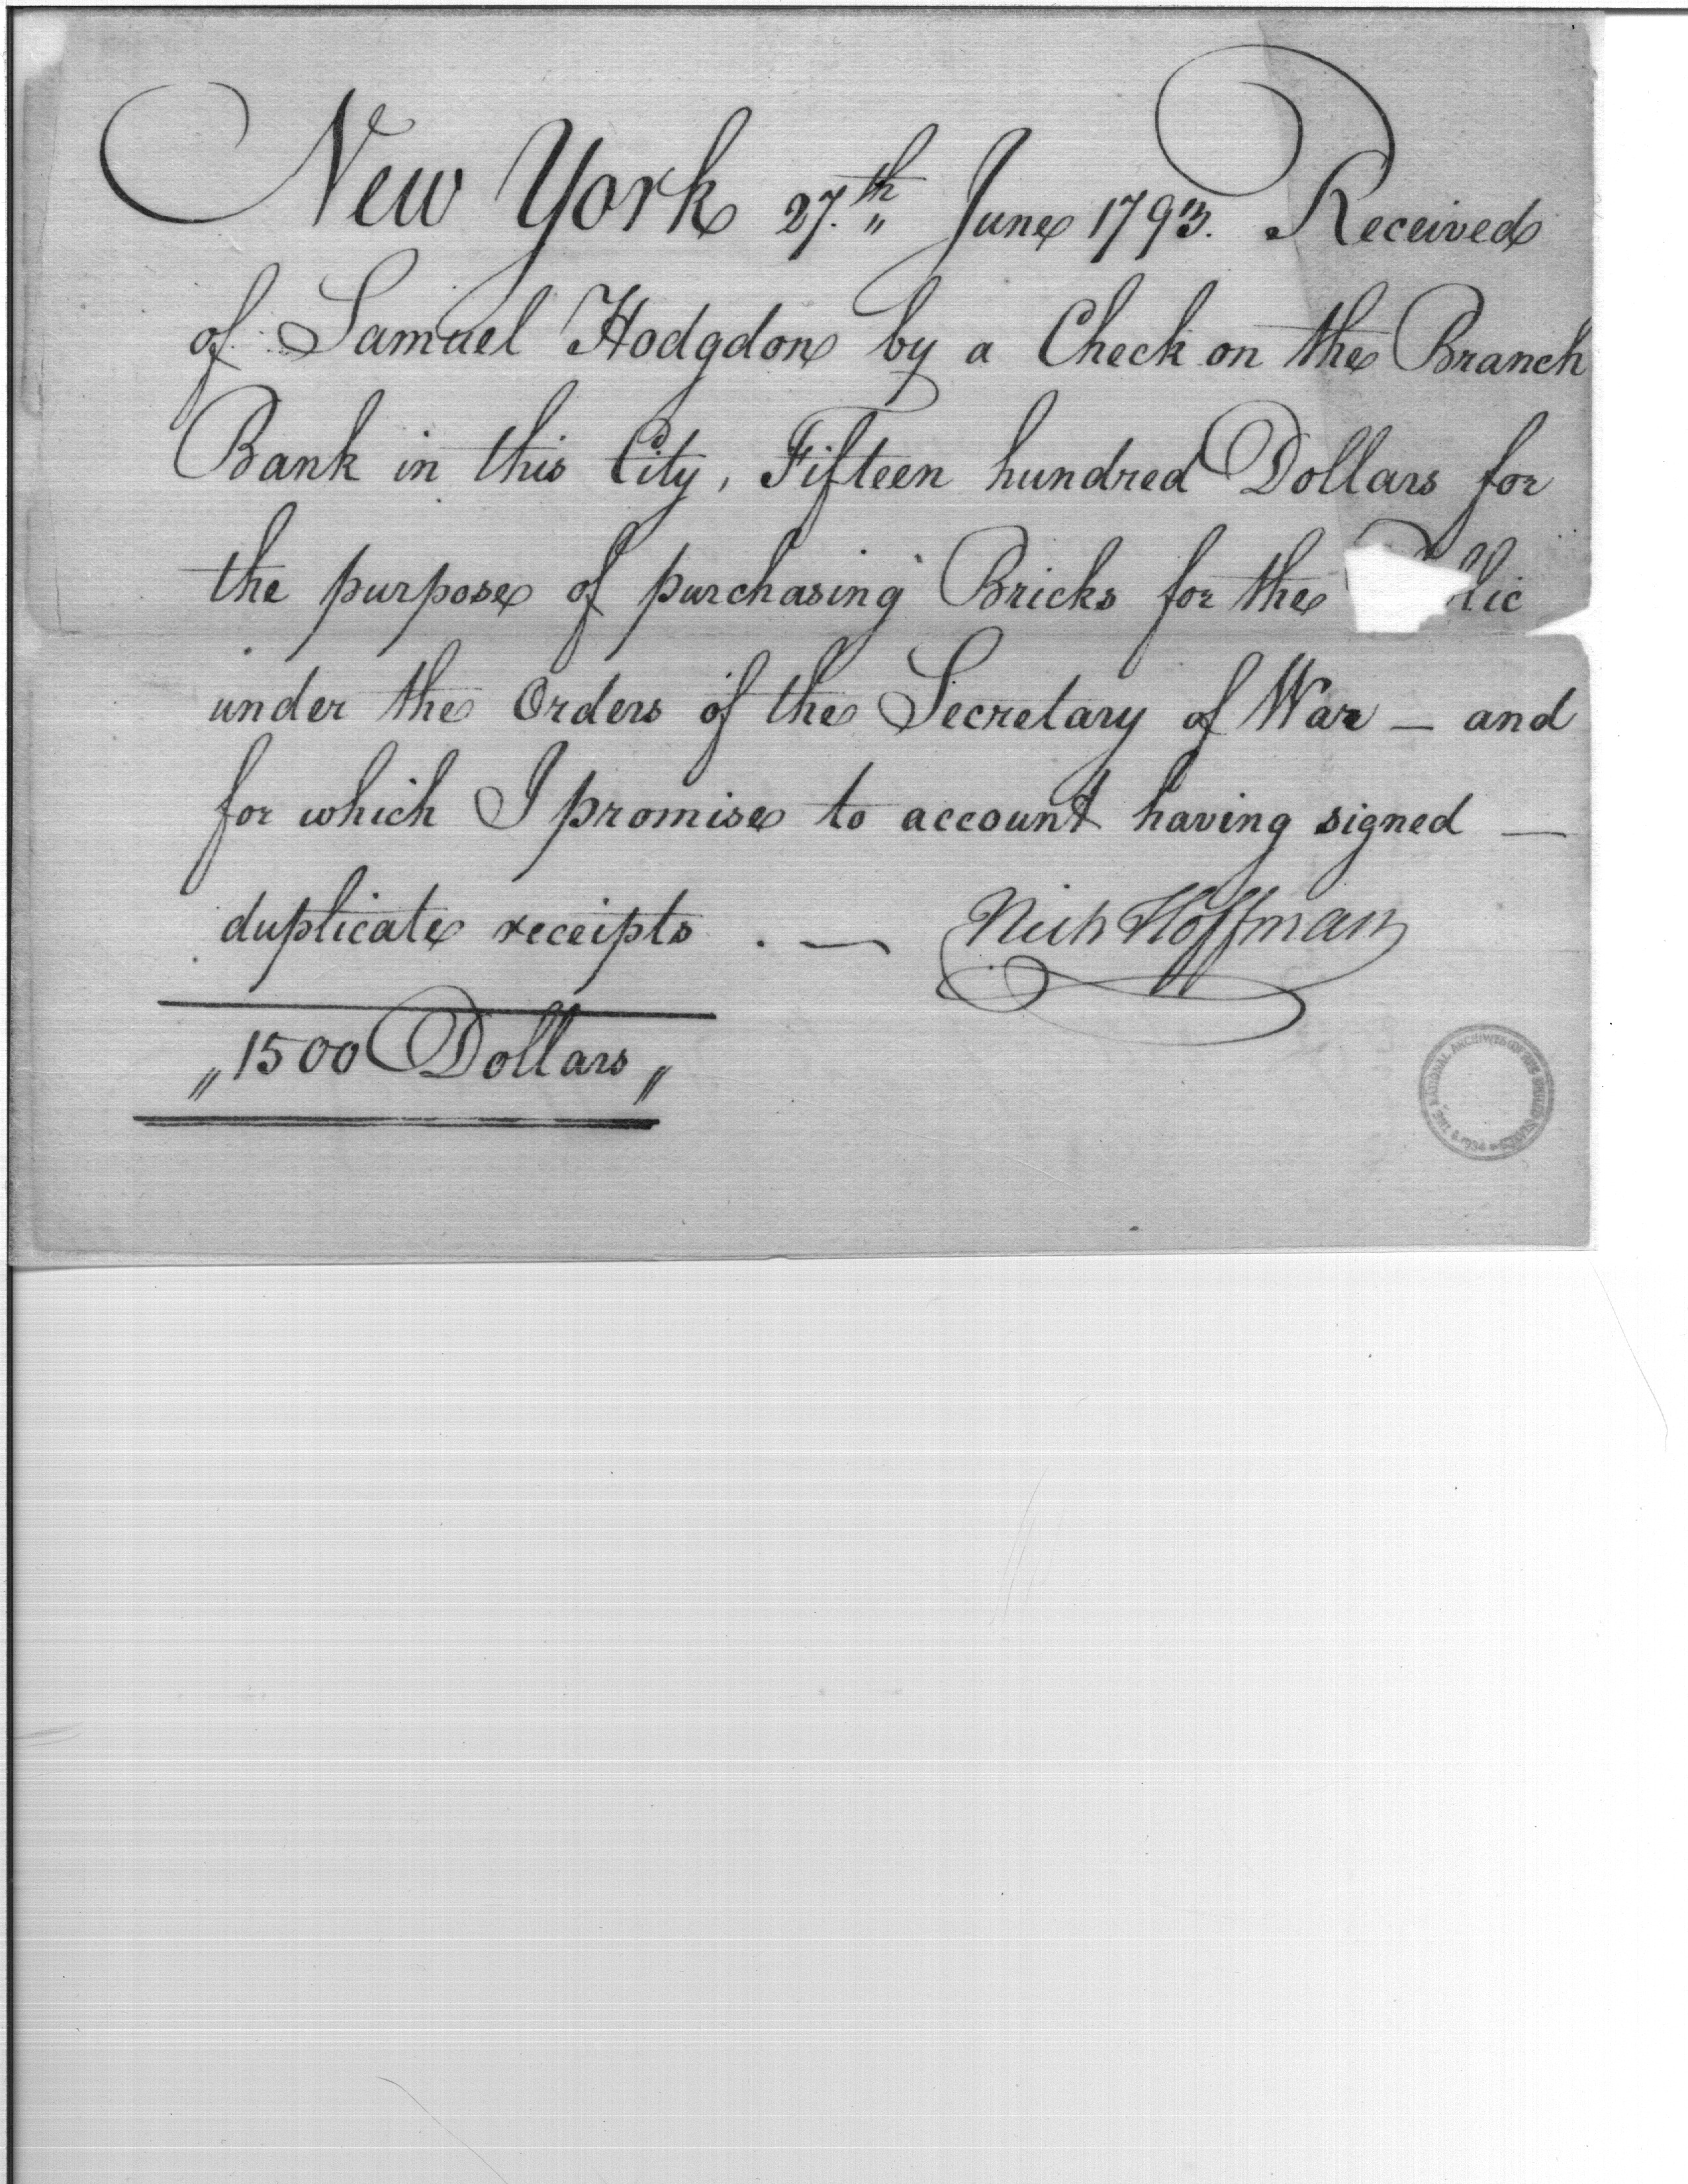 New York 27.th June 1793. Received
of Samuel Hodgdon by a Check on the Branch
Bank in this City, Fifteen hundred Dollars for
the purpose of purchasing Bricks for the
under the Orders of the Secretary of War — and
for which I promise to account having signed —
duplicate receipts . — Nich Hoffman
„1500 Dollars„
THE NATIONAL ARCHIVES OF THE UNITED STATES 1934